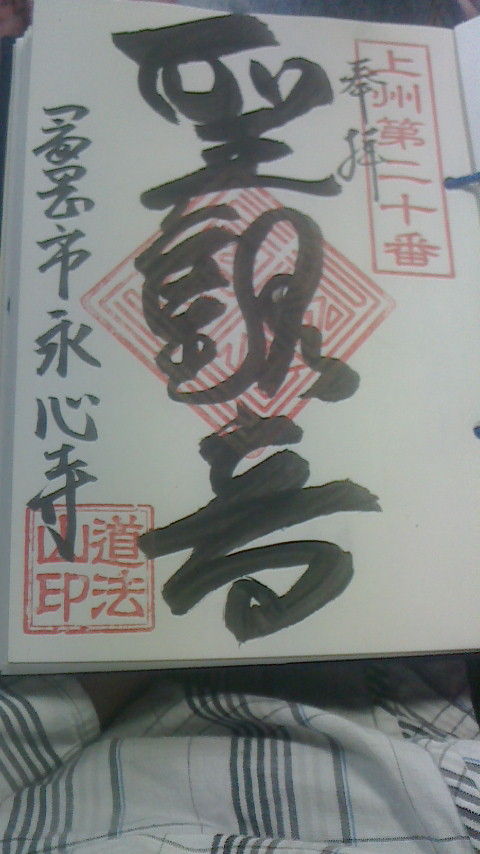 上州第二十番
奉拝
聖観音
富岡市永心寺
道法
山印